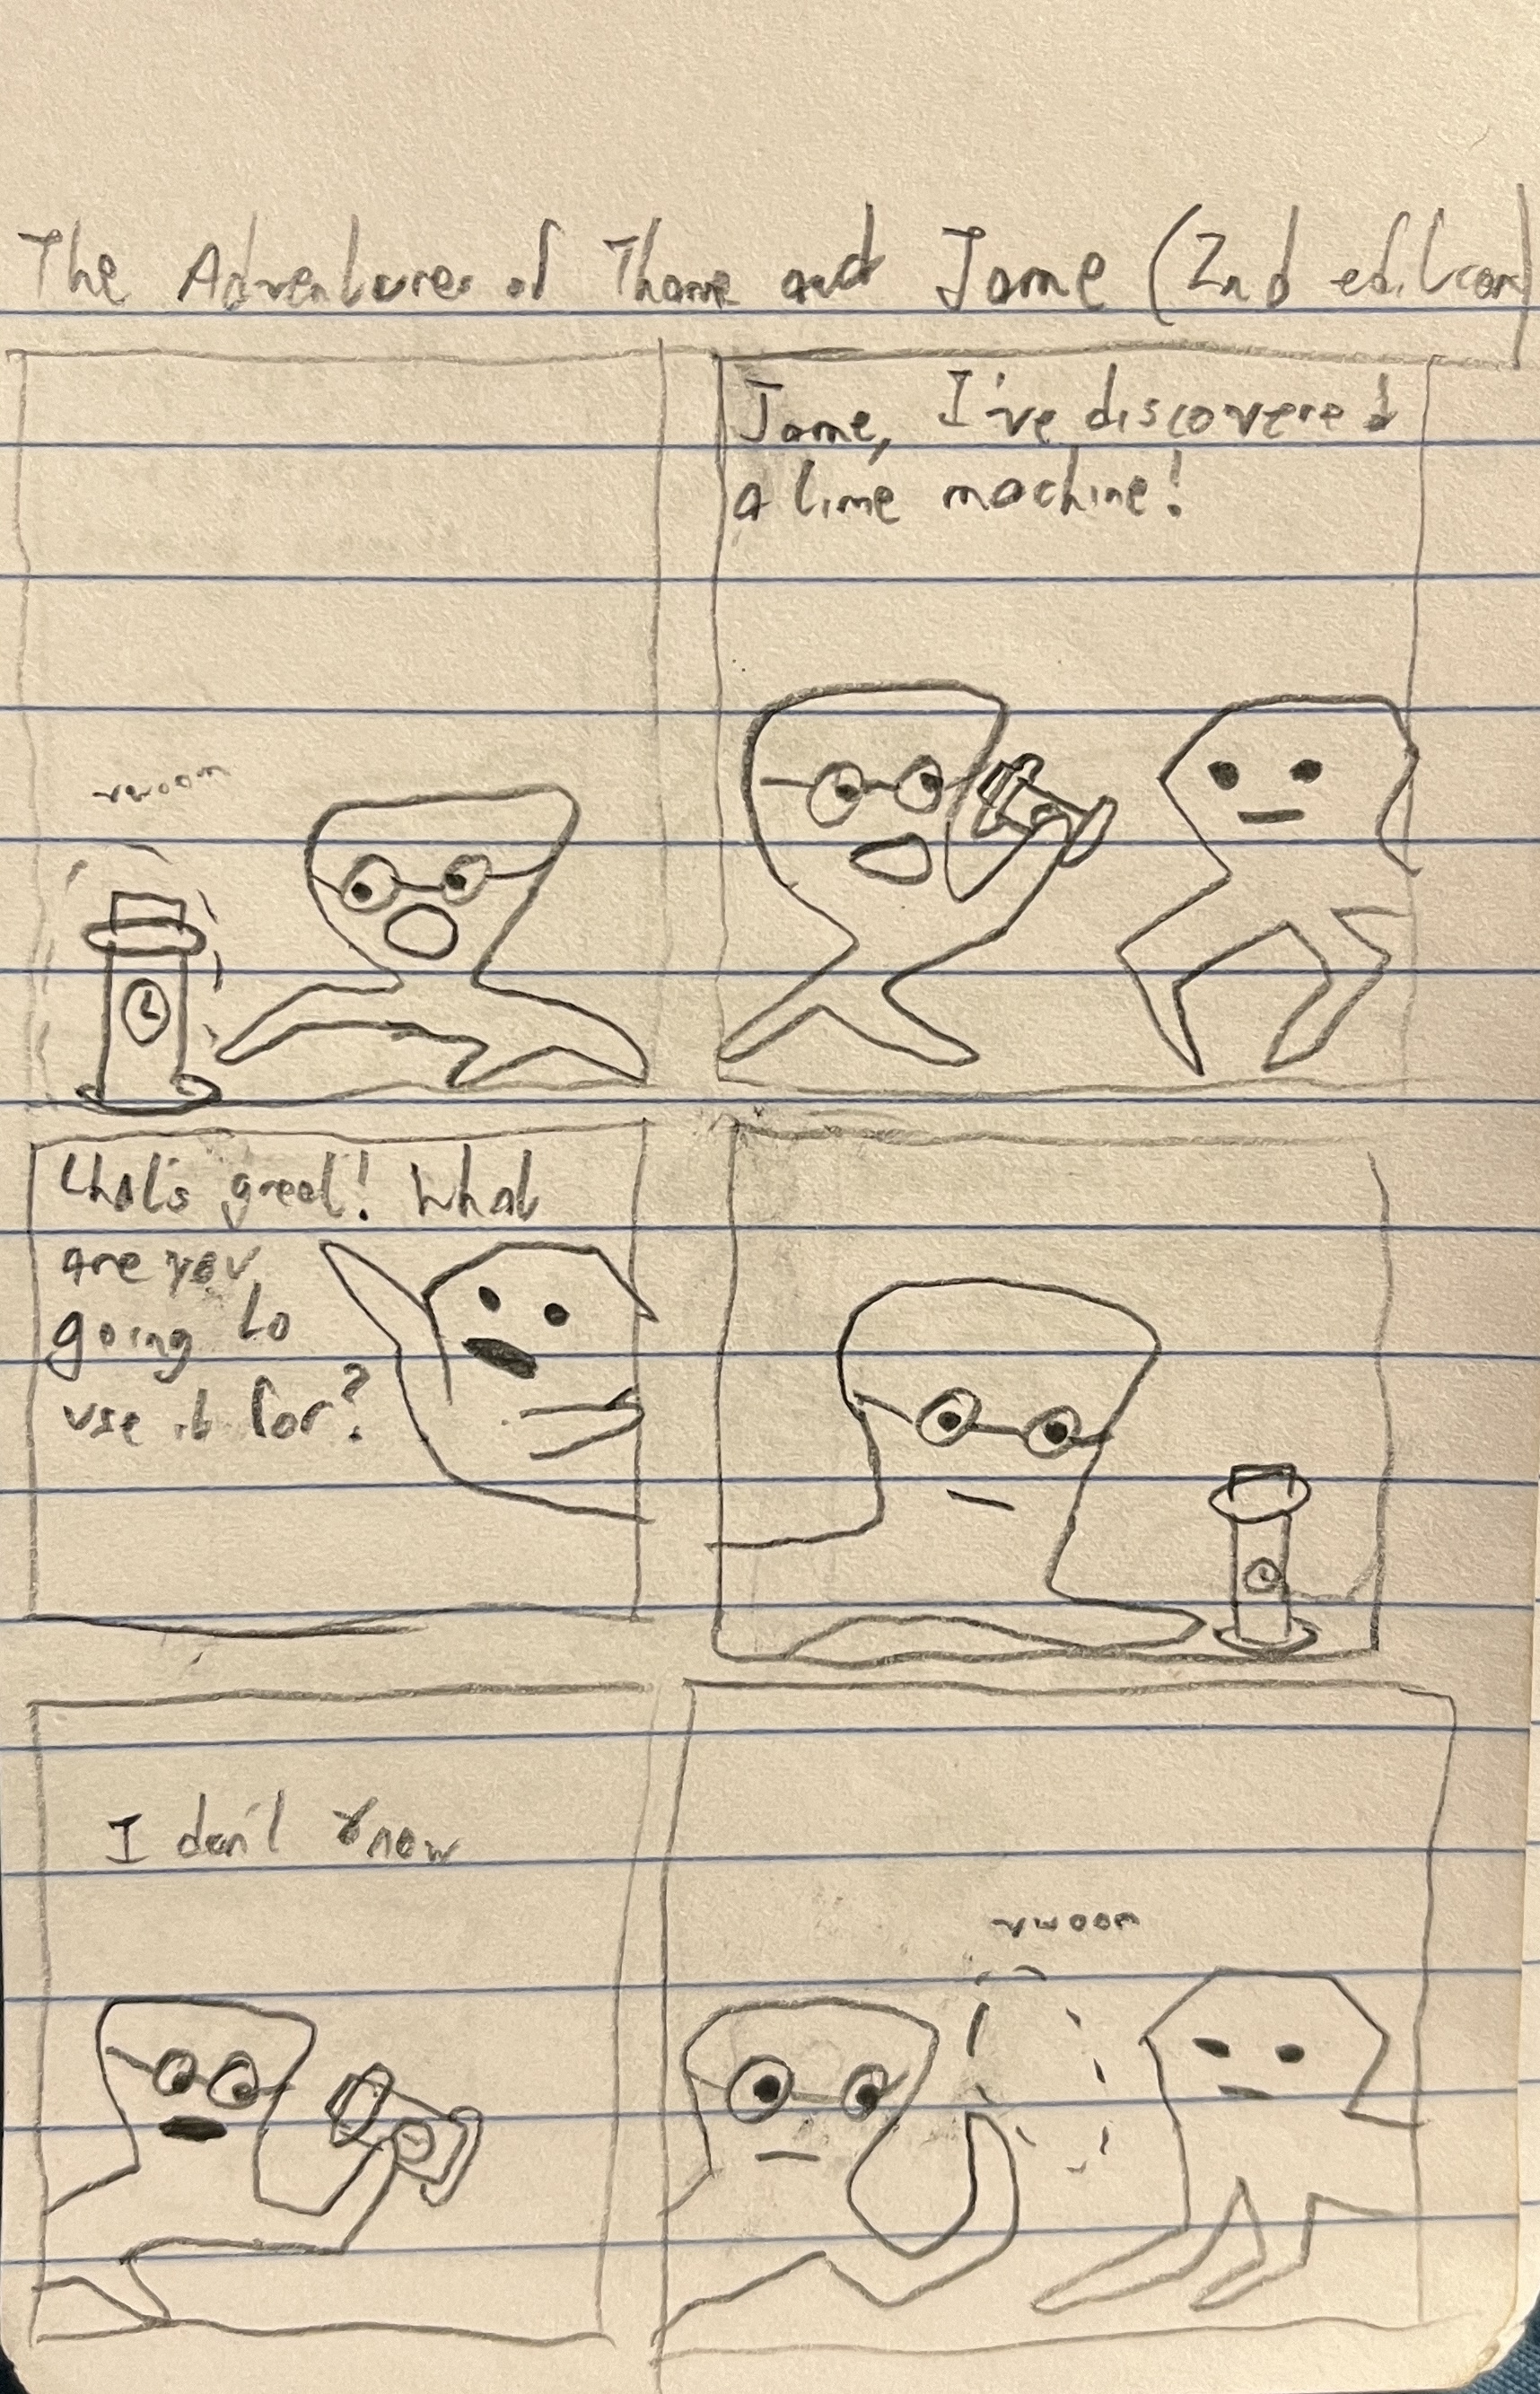 The Adventures of Thome and Jome (2nd edition)
vwoom
Jome, I've discovered
a time machine!
that's great! What
are you
going to
use it for?
I don't know
vwoom